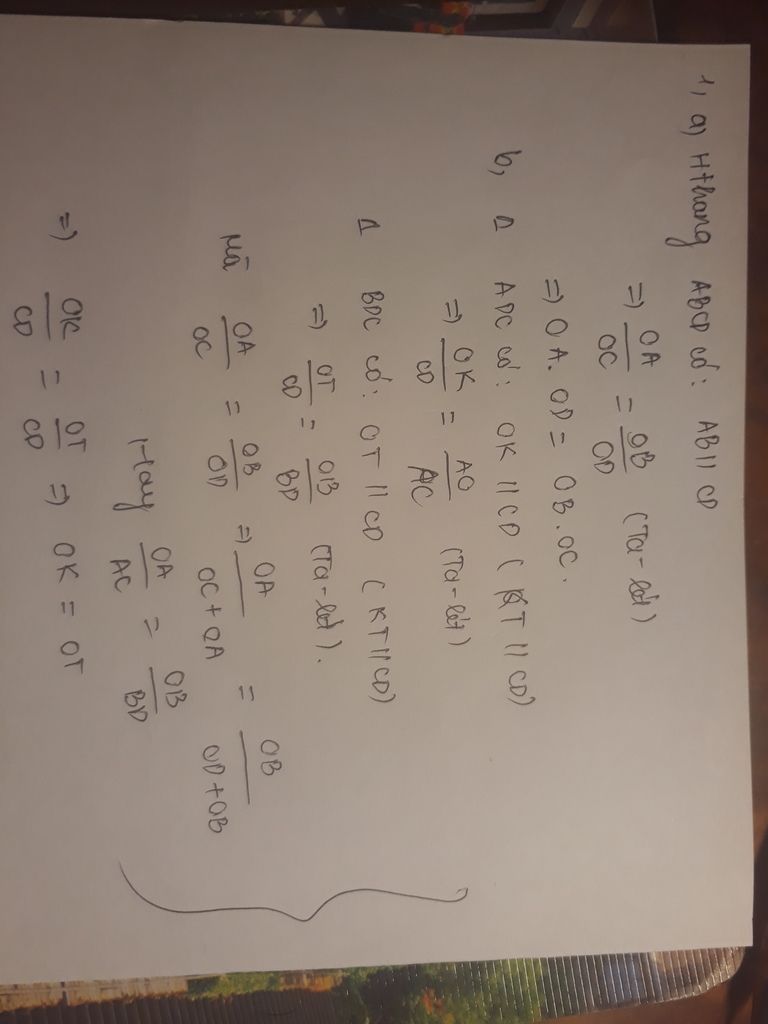 1, a) Hthang ABCD có: AB // CD
=> OA/OC = OB/OD (Ta-lét)
=> OA. OD = OB. OC.
b, Δ ADC có: OK // CD ( KT // CD)
=> OK/CD = AO/AC (Ta-lét)
Δ BDC có: OT // CD ( KT // CD)
=> OT/CD = OB/BD (Ta-lét).
Mà OA/OC = OB/OD => OA/OC+OA = OB/OD+OB
Hay OA/AC = OB/BD
=> OK/CD = OT/CD => OK = OT